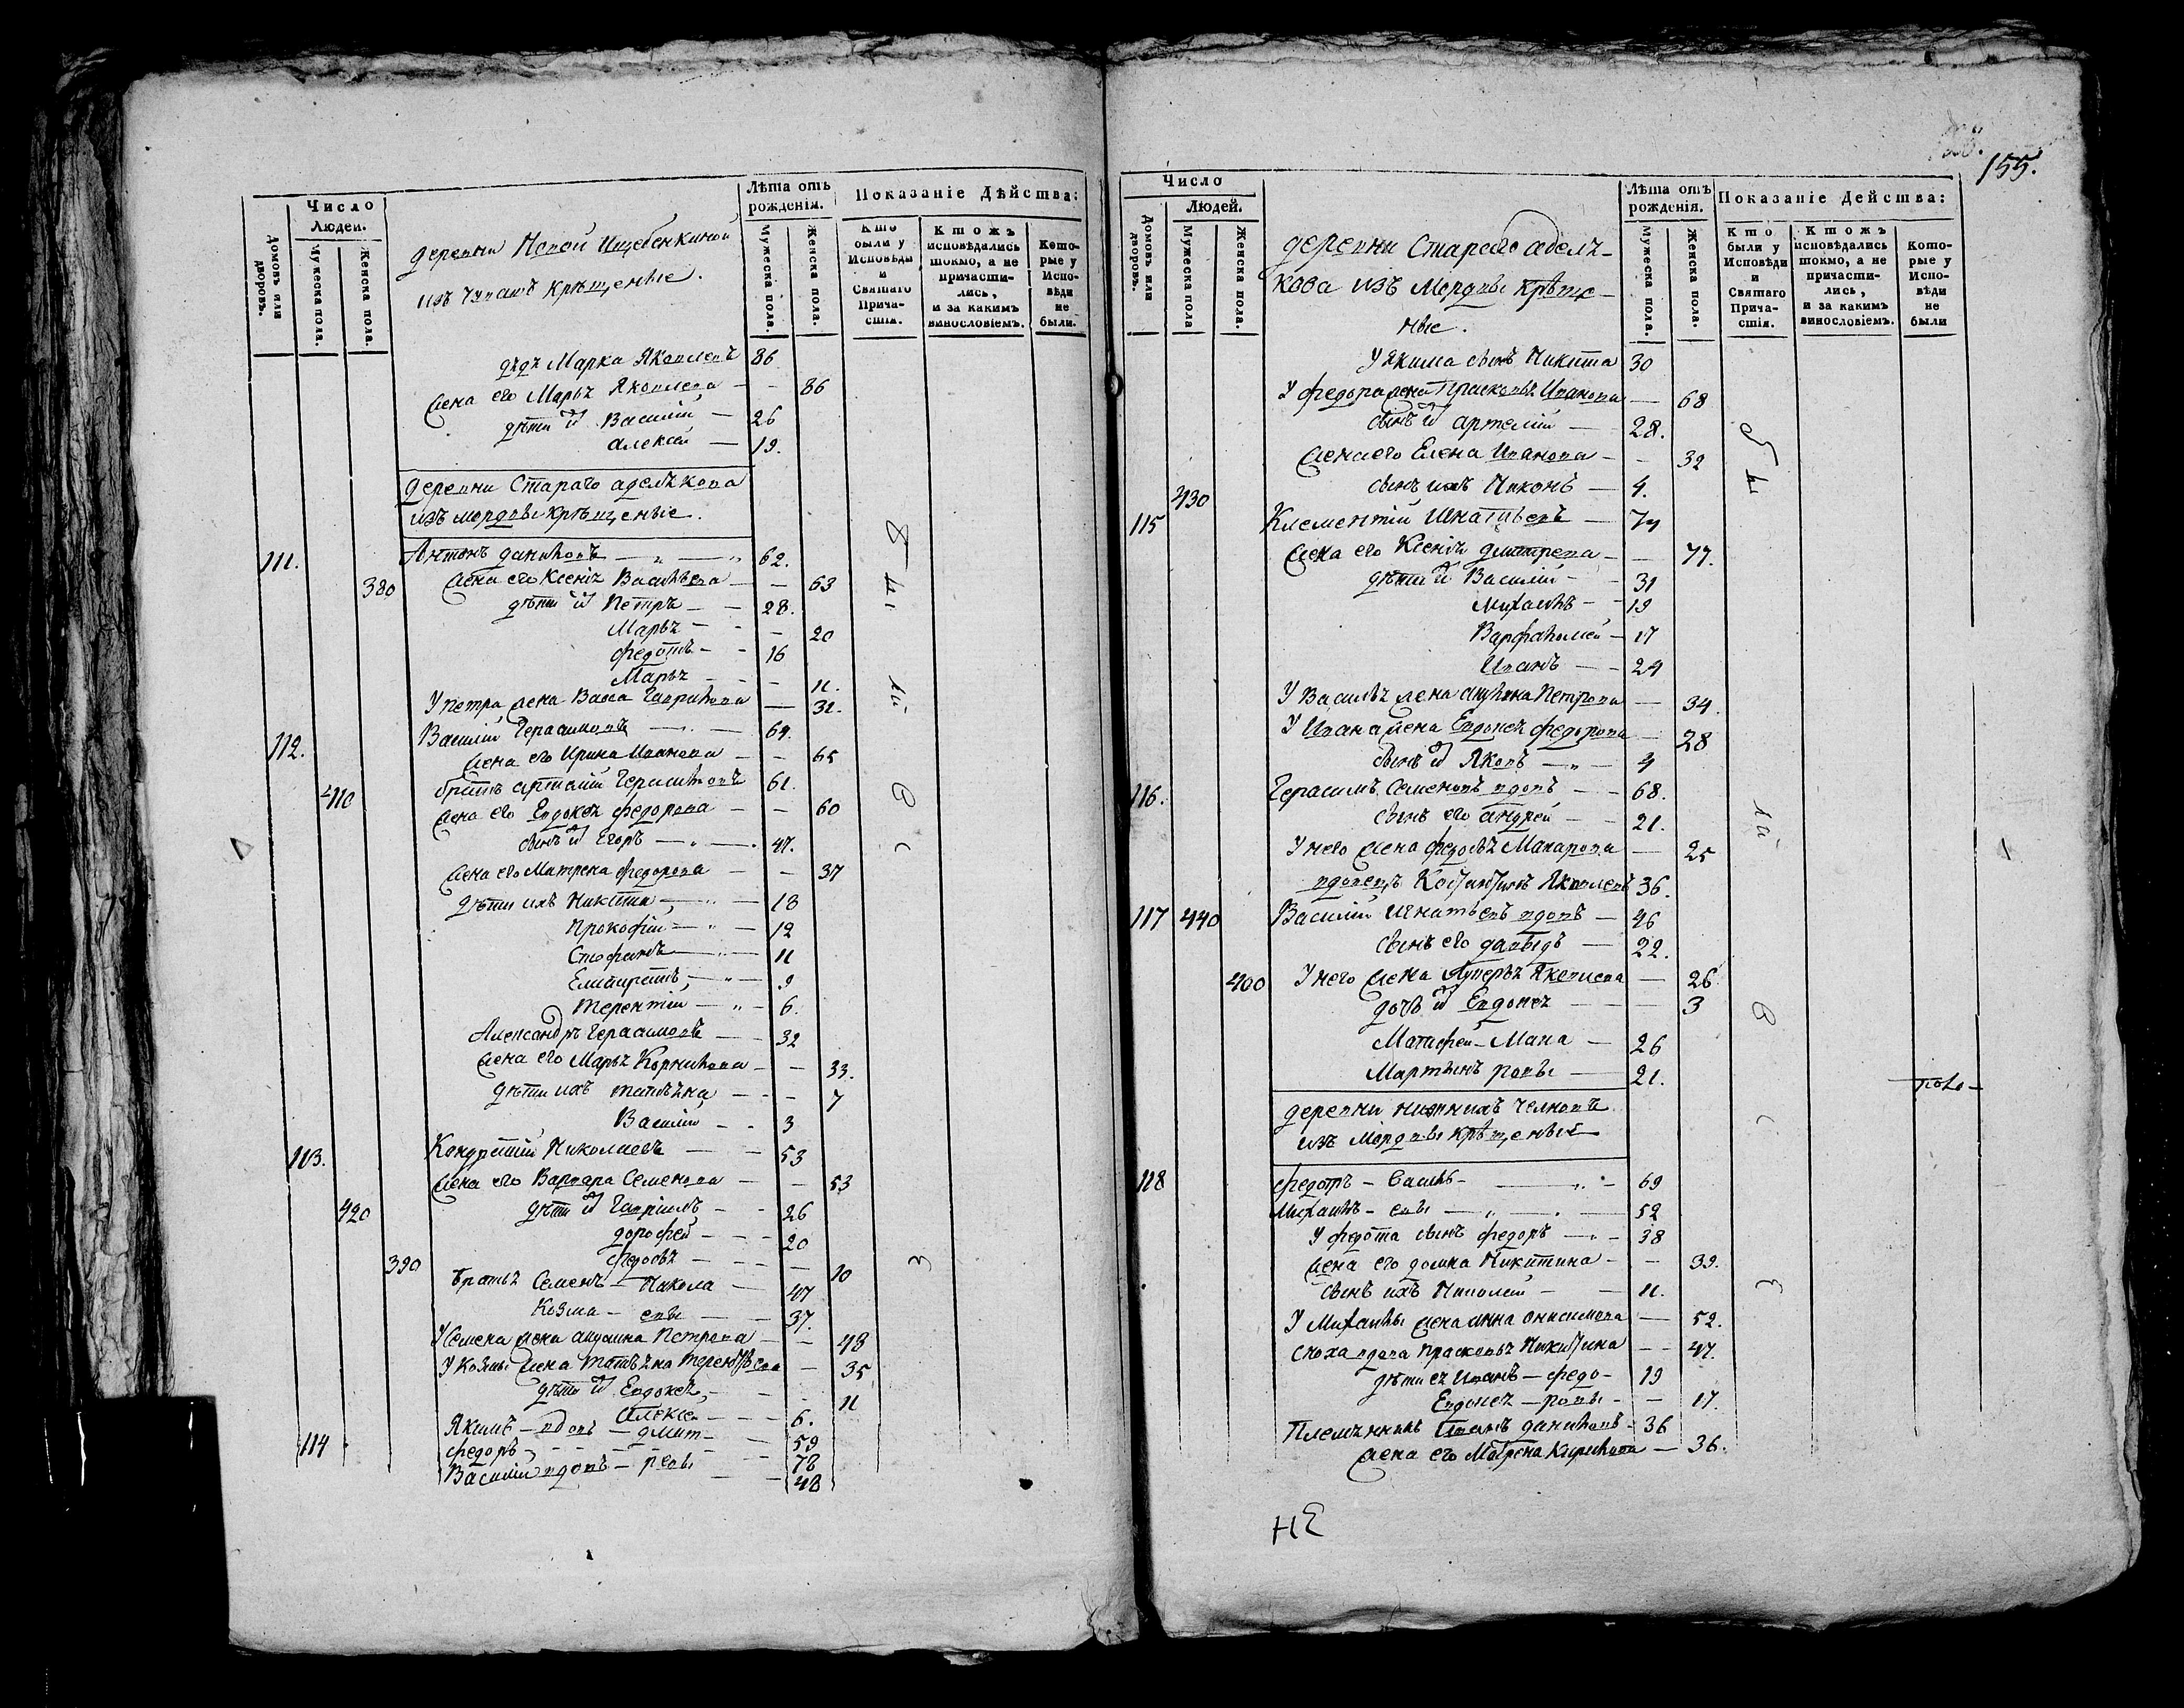 Число
Людей.
Домовъ или дворовъ.
Мужеска пола.
Женска пола.
деревни Новой Ищебенкиной
изъ чувашъ крѣщеные.
Лѣта отъ рожденія.
Мужеска пола.
Женска пола.
Показаніе Дѣйства:
Кто были у Исповѣди и Святаго Причастія.
Ктожъ исповѣдались токмо, а не причастились, и за какимъ винословіемъ.
Которые у Исповѣди не были.
дядя Марка Яковлевъ 86
жена его Марья Яковлева — — 86
дѣти их Василій — 26
алексѣй — 19.
деревни Стараго аделякова
изъ мордвы крѣщеные.
111. Антонъ даниловъ — 62.
380 жена его Ксенія Васильева — — 63
дѣти их Петръ — — 28.
Марья — — 20
федотъ — — 16
Марья — — 11.
У петра жена Васса Гаврилова — 31.
112. Василій Герасимовъ — 64.
жена его Ирина Иванова — — 65
410 братъ арталіи Герасимовъ 61.
жена его Евдокея федорова — — 60
сынъ их Егоръ — 47.
жена его Матрена федорова — — 37
дѣти ихъ Никита — 18
Прокофіи — 12
Стефанъ — 11
Елистратъ — 9
терентіи — 6.
Александръ Герасимовъ — 32
жена его Марья Корнилова — — 33.
дѣти ихъ татьяна — — 7
Василій — — 3
113. Кондратій Николаевъ — 53
жена его Варвара Семенова — — 53
420 дѣти их Гавріилъ — — 26
дорофей — — 20
390 федосья — — — 10
братья Семенъ — Никола — 47
Козма — евы — 37.
У Семена жена акулина Петрова — — 48
У Козмы жена татьяна терентьева — 35
дѣти их Евдокея — — 11
Алексѣи — — 6.
114 Якимъ — вдовъ — дмит — 59
федоръ — — — — 78
Василій вдовъ — ревы — 48
155.
Число
Людей.
Домовъ или дворовъ.
Мужеска пола
Женска пола.
деревни Стараго аделякова изъ Мордвы крѣщеные.
Лѣта отъ рожденія.
Мужеска пола.
Женска пола.
Показаніе Действа:
Кто были у Исповѣди и Святаго Причастія.
Ктожъ исповѣдались токмо, а не причастились, и за какимъ винословіемъ.
Которые у Исповѣди не были
У якима сынъ Никита 30
У федора жена Прасковья Иванова — 68
сынъ их арталіи — 28.
жена его Елена Иванова — — 32
430 сынъ ихъ Никонъ — 4.
115 Клементіи Игнатьевъ — 74
жена его Ксенія дмитрева — — 77.
дѣти их Василій — — 31
Михаилъ — — 19
Варфаломеи — 17
Иванъ — — 24
У Василья жена акулина Петрова — 34.
У Ивана жена Евдокея федорова — 28
сынъ их Яковъ — 4
116. Герасимъ Семеновъ вдовъ — — 68.
сынъ его андреи — — 21.
У него жена федосья Макарова — 25
вдовецъ Костантинъ Яковлевъ 36.
117 440 Василіи игнатьевъ вдовъ — 46
сынъ его давыдъ — 22.
400 У него жена Лукерья Яковлева — 26
дочь их Евдокея — — 3
Матвфеи — Мака — 26
Мартынъ ровы — 21.
деревни нижнихъ челновъ
изъ Мордвы крѣщеные
118 федотъ — Василь — 69
Михаилъ — евы — 52
У федота сынъ федоръ — 38
жена его домна Никитина — — 39.
сынъ ихъ Николаи — — 11.
У Михаилы жена анна онисимова — 52.
сноха вдова прасковья Никитина — — 47.
дѣти ея Иванъ — федо — 19
Евдокея — ровы — — 17.
Племянникъ Иванъ даниловъ — 36
жена его Матрена Кирилова — 36.